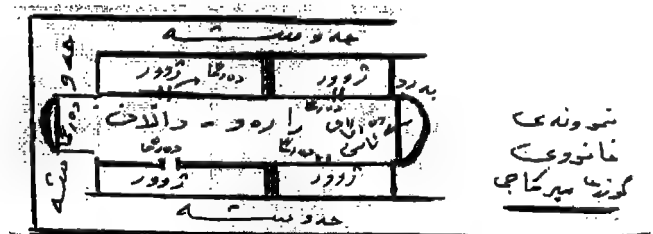 حەوشە
حەو
ژوور
دەرگا
ژوور
دەرگا
ڕارەو - داڵان
دەرگا
دەرگا
دەرگا
ژوور
ژوور
شە
حەوشە
نموونەی
خانووی
گوندی میرکاجی